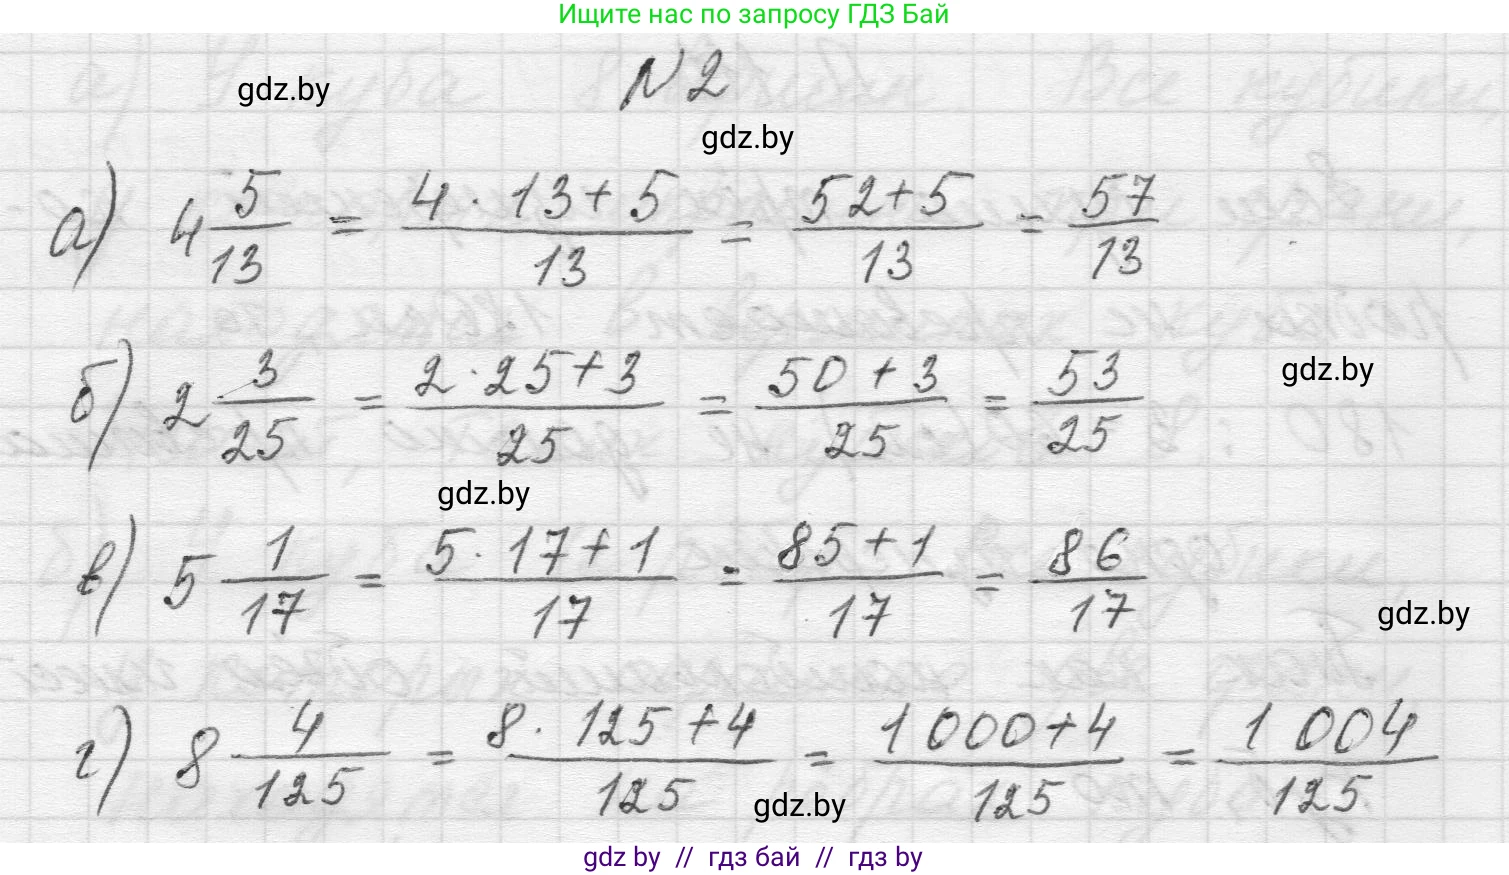 Ищите нас по запросу ГДЗ Бай
gdz.by
N 2
gdz.by
а) 4 5/13 = (4 · 13 + 5)/13 = (52 + 5)/13 = 57/13
б) 2 3/25 = (2 · 25 + 3)/25 = (50 + 3)/25 = 53/25
gdz.by
gdz.by
в) 5 1/17 = (5 · 17 + 1)/17 = (85 + 1)/17 = 86/17
gdz.by
г) 8 4/125 = (8 · 125 + 4)/125 = (1 000 + 4)/125 = 1 004/125
gdz.by
gdz by // гдз бай // гдз by